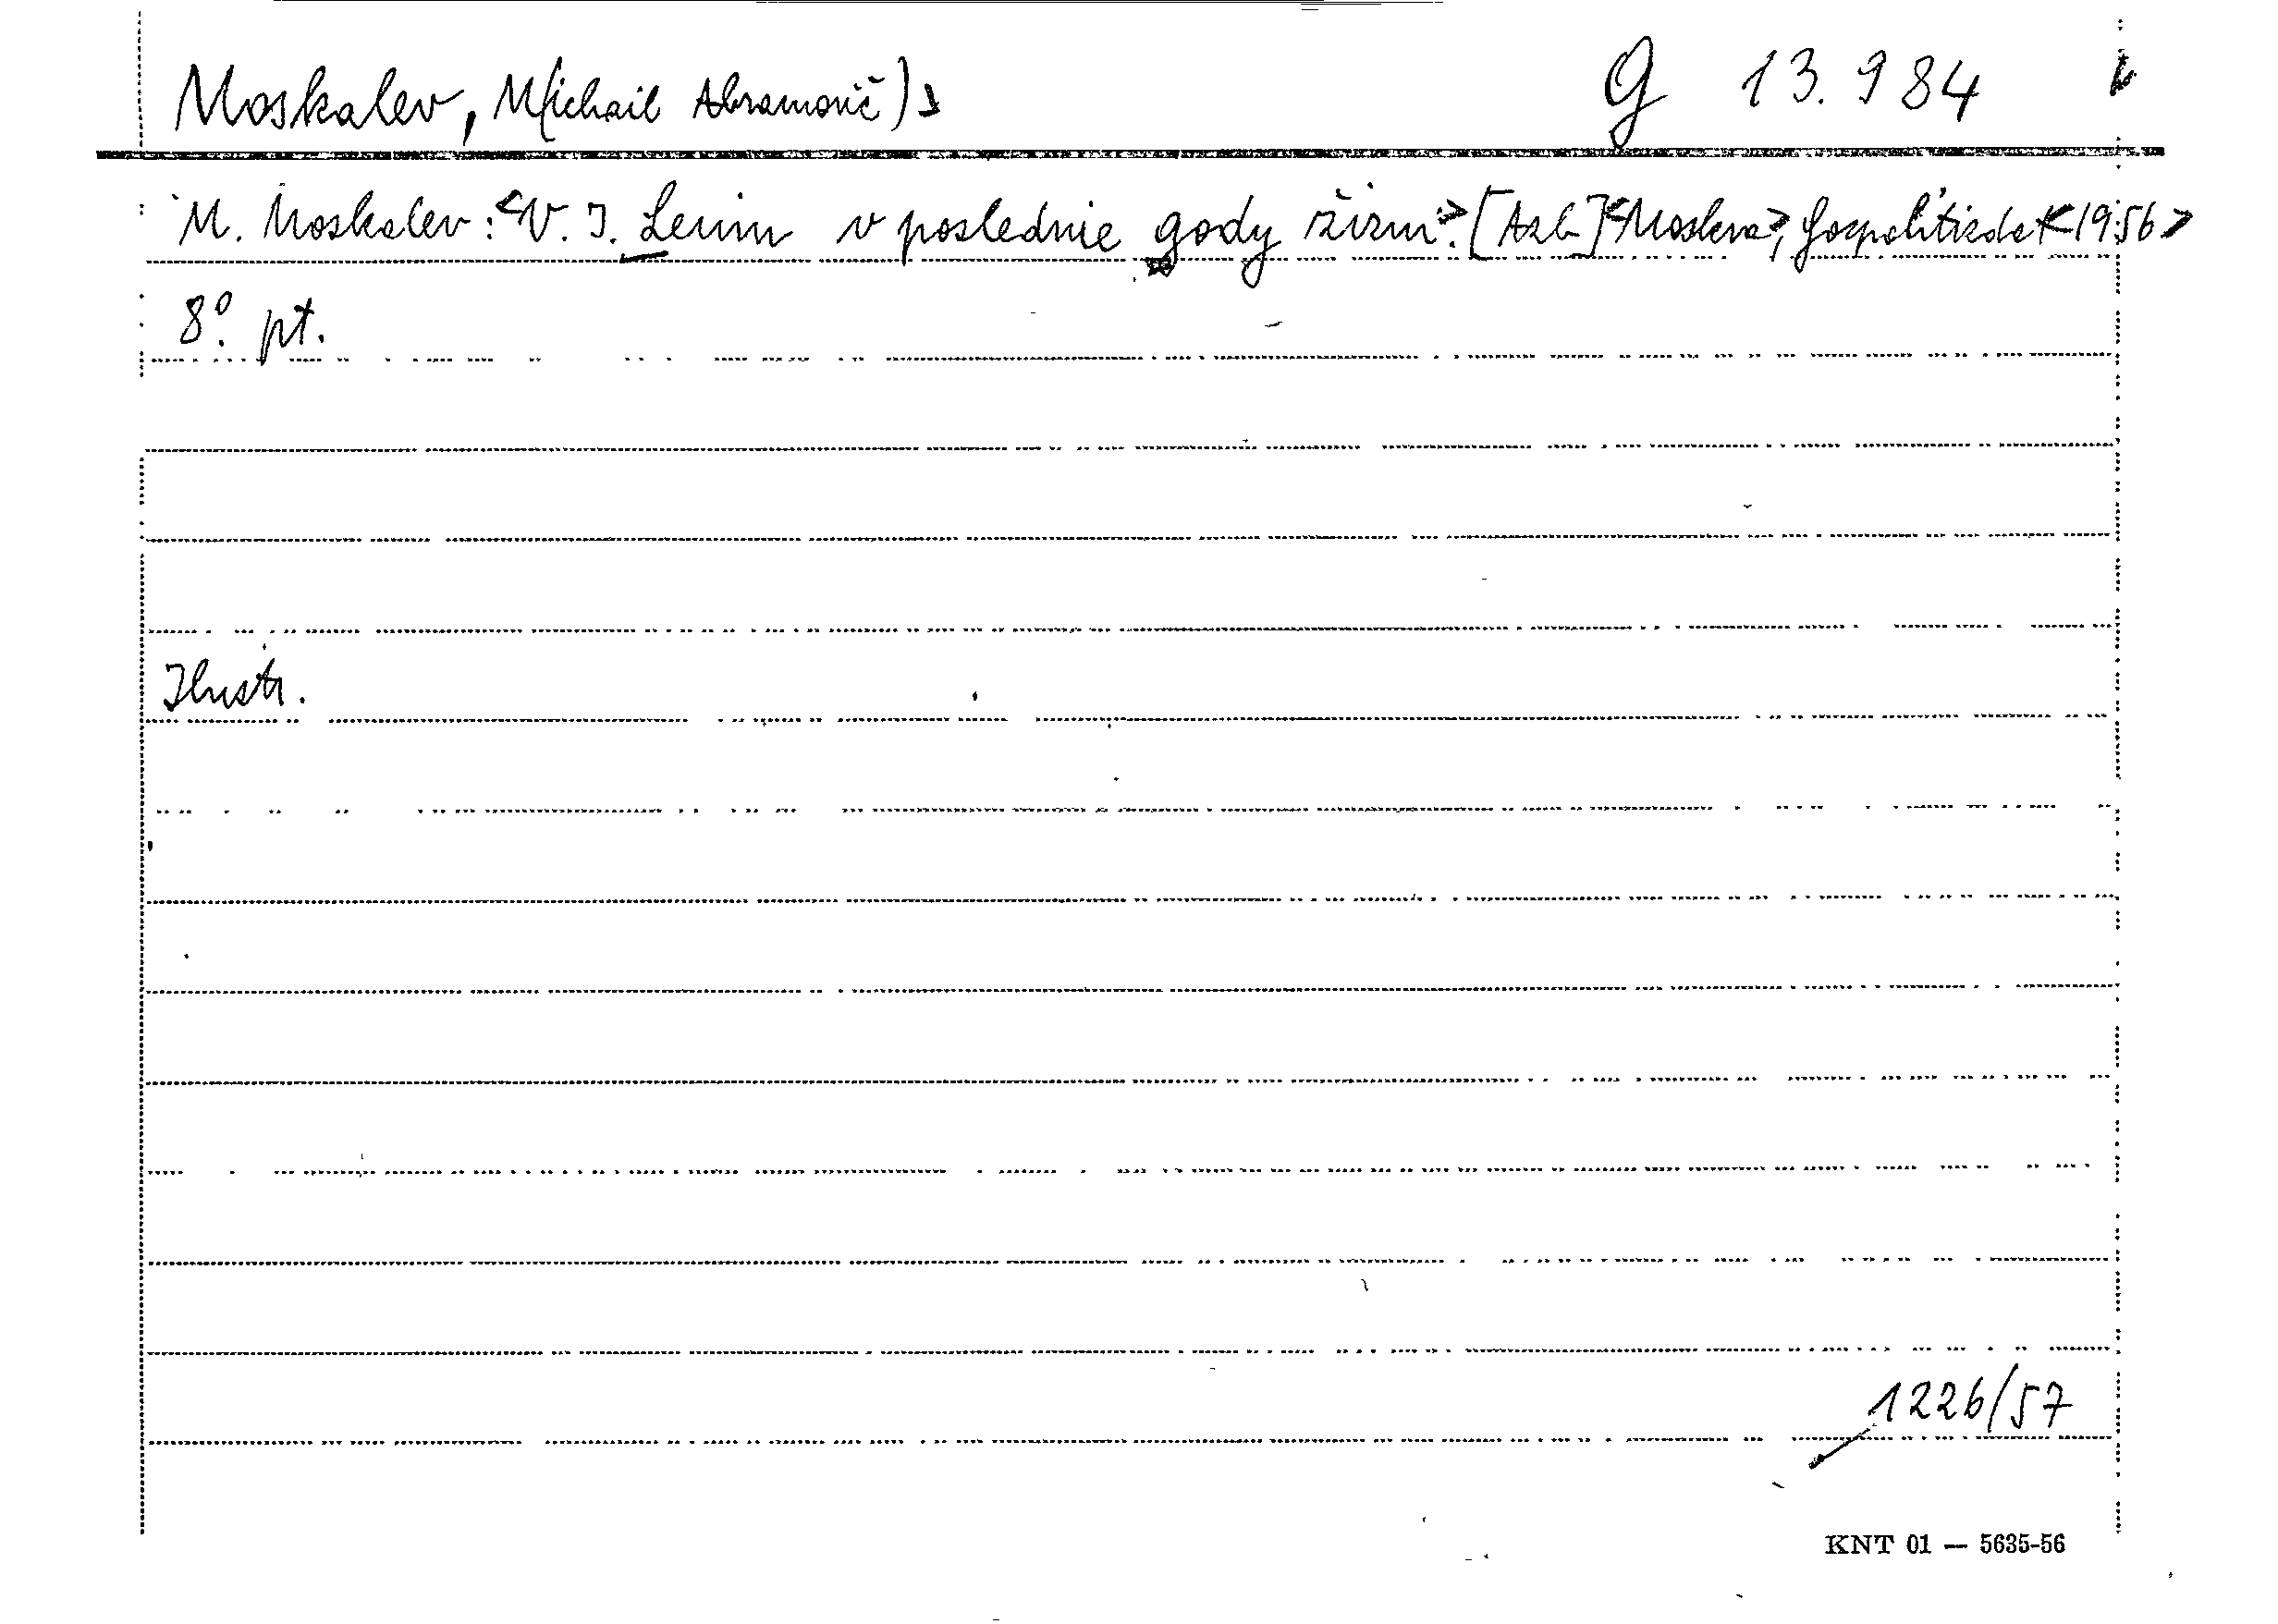 Moskalev, M(ichail Abramovič) G 13.984
M. Moskalev: <V. I. Lenin v poslednie gody žizni>. [Azb.] <Moskva>, Gospolitizdat <1956>
8°. pt.
Ilustr.
1226/57
KNT 01 — 5635-56